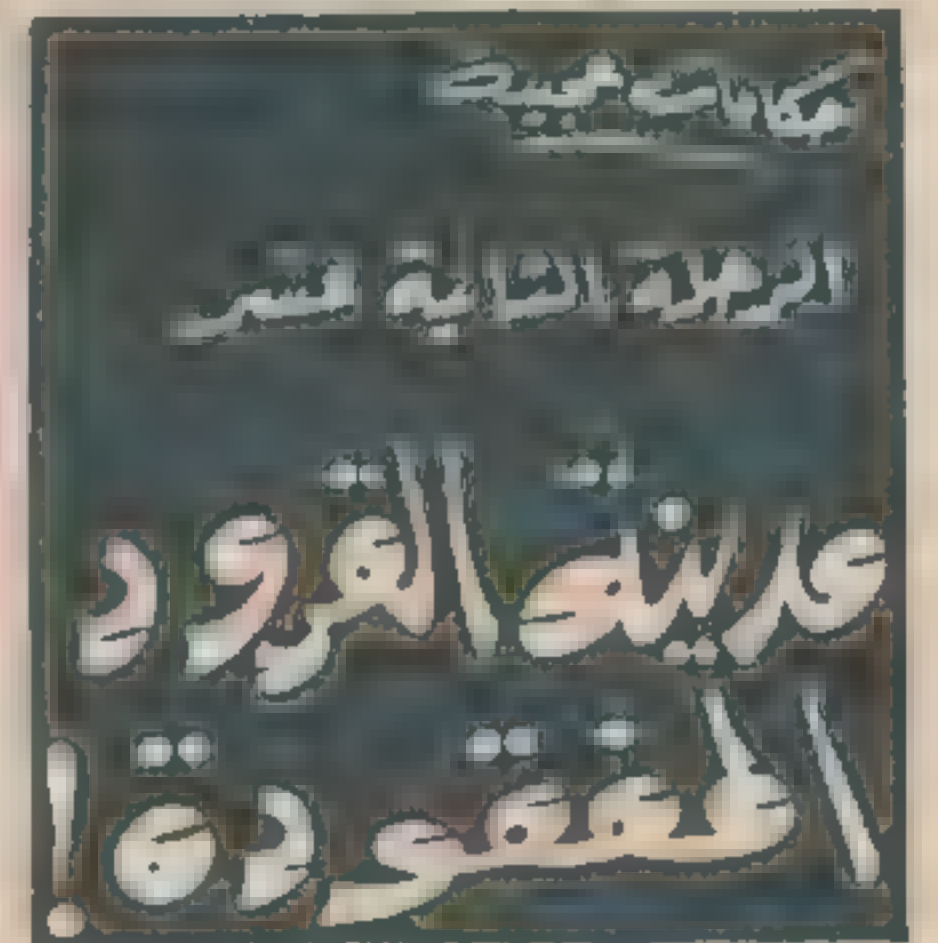 حكايات عجيبة
الرحلة الثانية عشر
مدينة القرود
المفقودة!